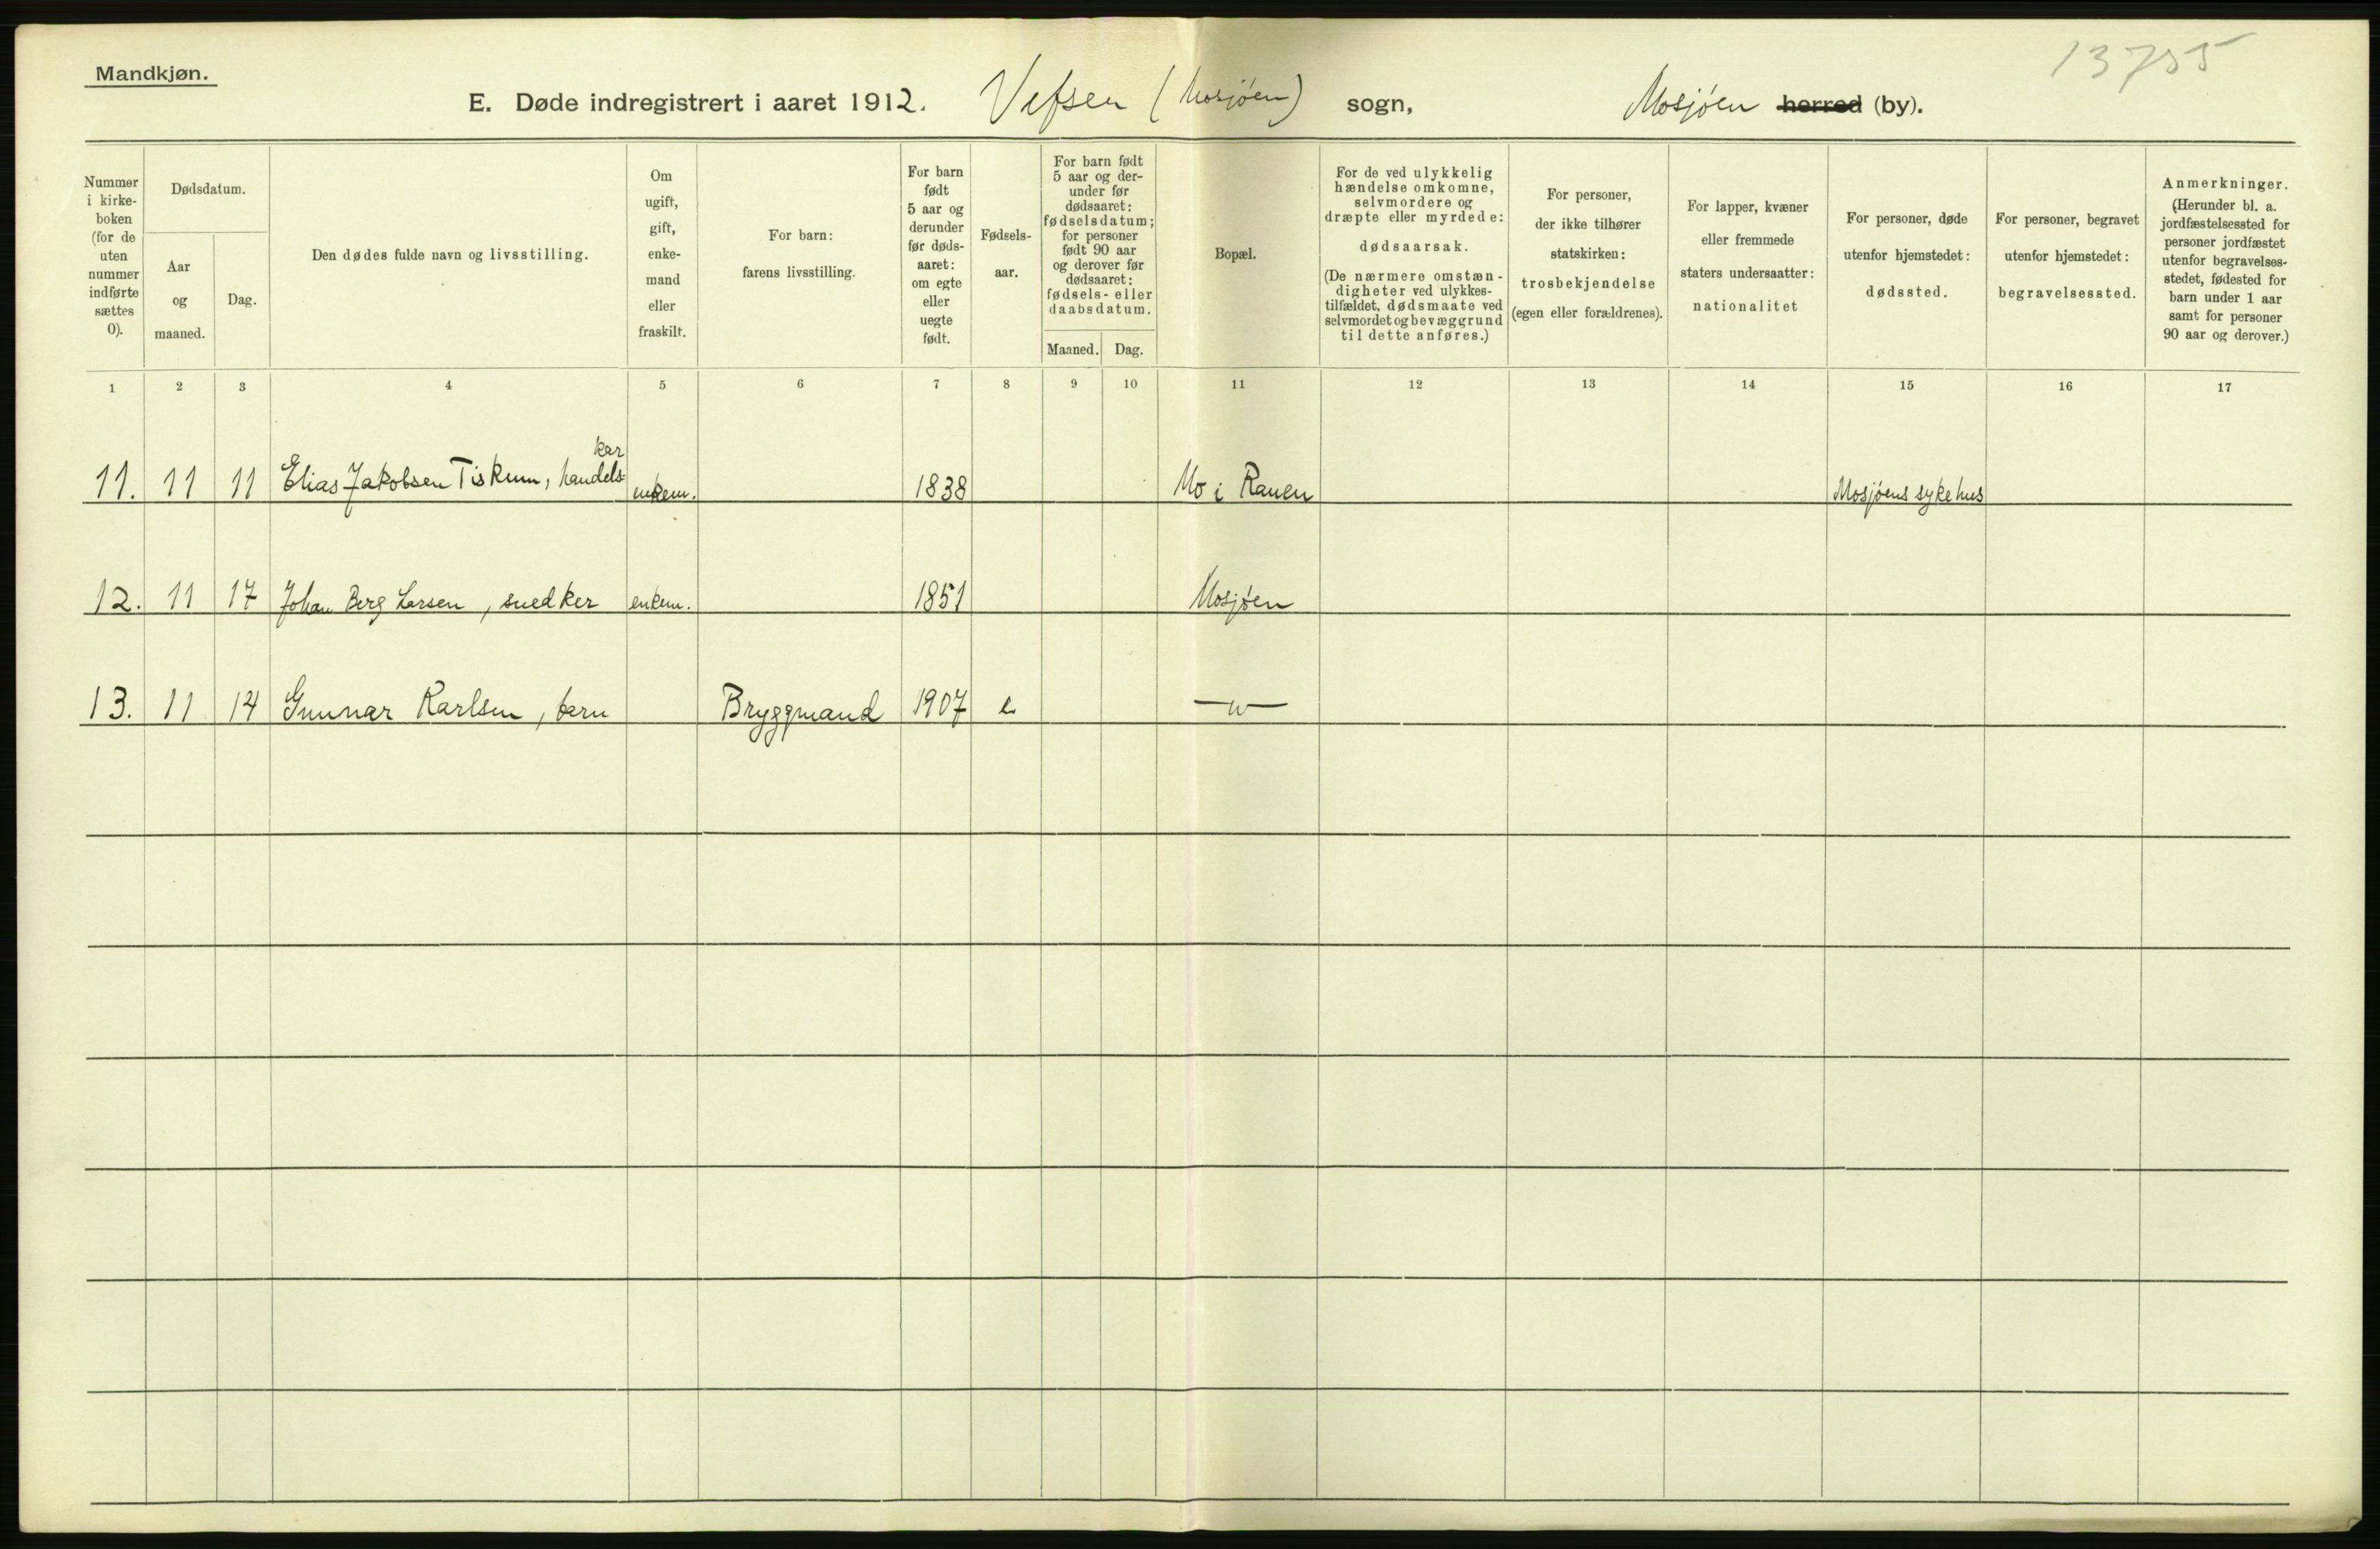 13755
Mandkjøn.
E. Døde indregistrert i aaret 1912. Vefsen (Mosjøen) sogn, Mosjøen herred (by).
Nummer i kirkeboken (for de uten nummer indførte sættes 0).
Dødsdatum.
Aar og maaned.
Dag.
Den dødes fulde navn og livsstilling.
Om ugift, gift, enkemand eller fraskilt.
For barn: farens livsstilling.
For barn født 5 aar og derunder før dødsaaret: om egte eller uegte født.
Fødselsaar.
For barn født 5 aar og derunder før dødsaaret: fødselsdatum; for personer født 90 aar og derover før dødsaaret: fødsels- eller daabsdatum.
Maaned. Dag.
Bopæl.
For de ved ulykkelig hændelse omkomne, selvmordere og dræpte eller myrdede: dødsaarsak.
(De nærmere omstændigheter ved ulykkestilfældet, dødsmaate ved selvmordet og bevæggrund til dette anføres.)
For personer, der ikke tilhører statskirken: trosbekjendelse (egen eller forældrenes).
For lapper, kvæner eller fremmede staters undersaatter: nationalitet
For personer, døde utenfor hjemstedet: dødssted.
For personer, begravet utenfor hjemstedet: begravelsessted.
Anmerkninger. (Herunder bl. a. jordfæstelsessted for personer jordfæstet utenfor begravelsesstedet, fødested for barn under 1 aar samt for personer 90 aar og derover.)
1 2 3 4 5 6 7 8 9 10 11 12 13 14 15 16 17
kar
11. 11 11 Elias Jakobsen Tiskum, handels- enkem. 1838 Mo i Ranen Mosjøens sykehus
12. 11 17 Johan Berg Larsen, snedker enkem. 1851 Mosjøen
13. 11 14 Gunnar Karlsen, barn Bryggmand 1907 e —"—